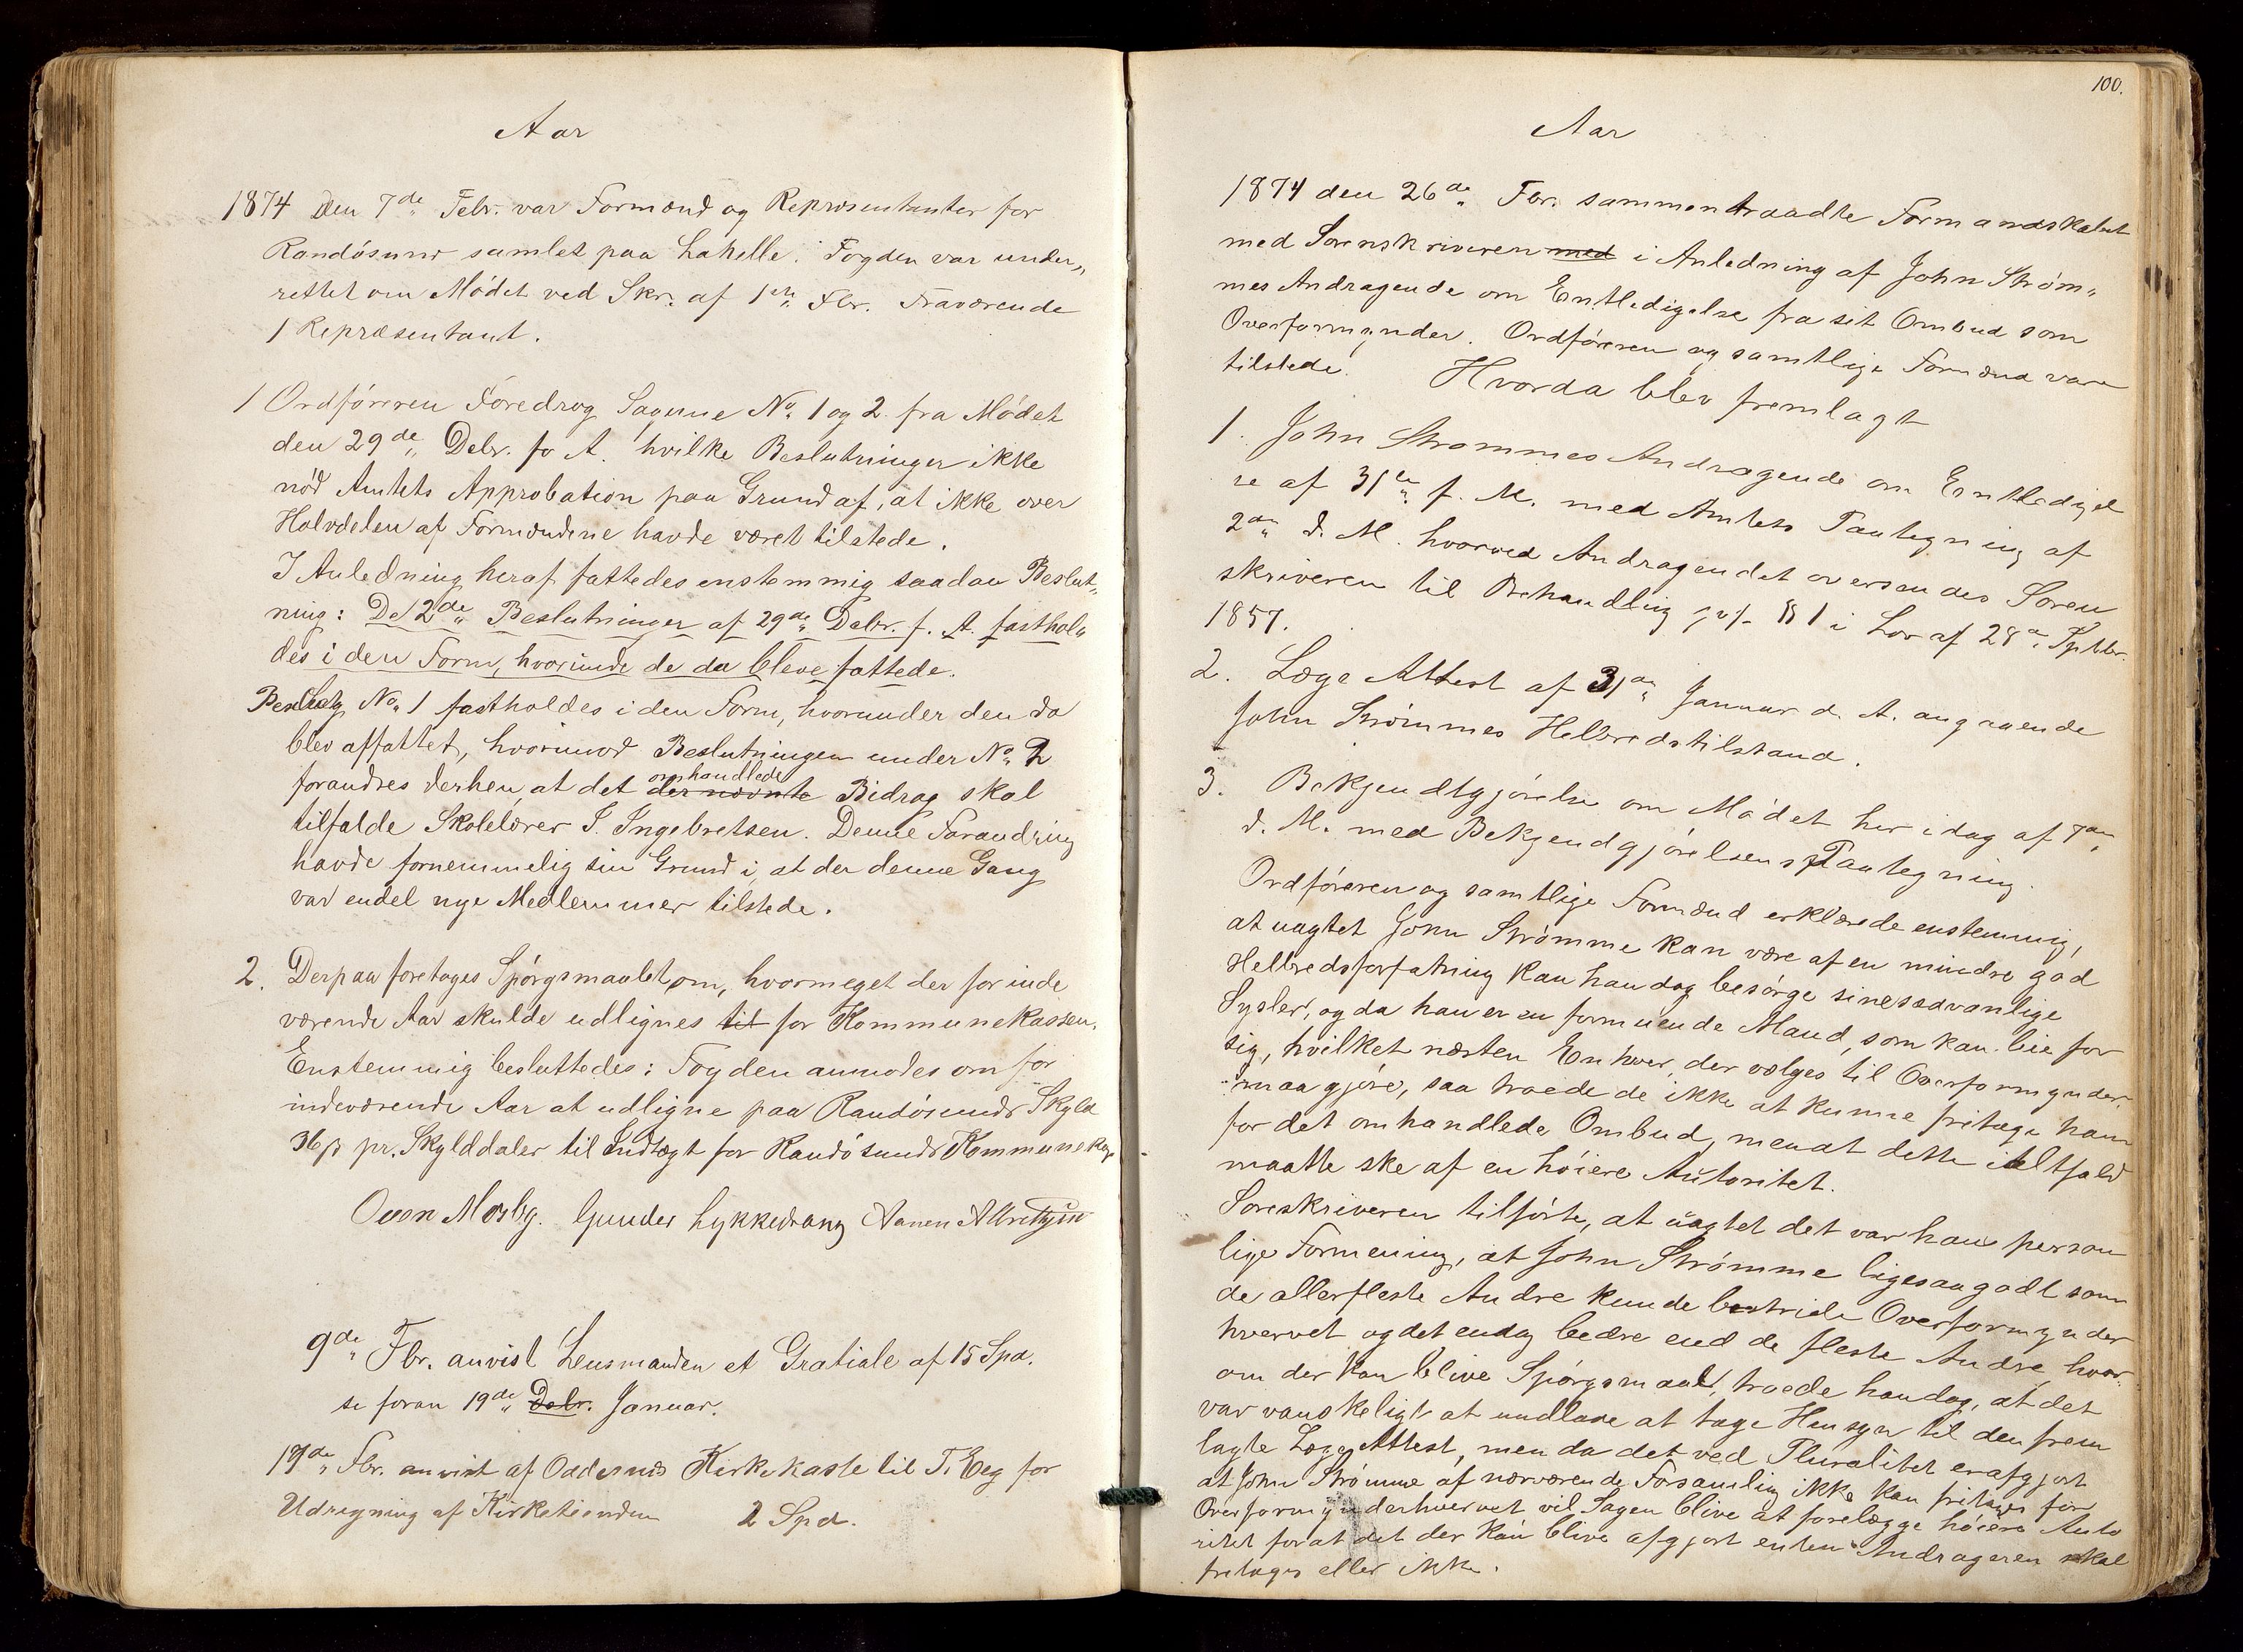 Aar
1874 Den 7de Febr. var Formænd og Repræsentanter for
Randösund samlet paa Lahelle. Fogden var under„
rettet om Mödet ved Skr. af 1ste Fbr. Fraværende
1 Repræsentant.
1 Ordföreren Foredrog Sagerne No. 1 og 2 fra Mödet
den 29de Debr. f. A. hvilke Beslutninger ikke
nöd Amtets Approbation paa Grund af, at ikke over
Halvdelen af Formændene havde været tilstede.
I Anledning heraf fattedes enstemmig saadan Beslut„
ning: De 2de Beslutninger af 29de Debr. f. A. fasthol„
des i den Form, hvorunde de da bleve fattede.
Beslutng No. 1 fastholdes i den Form, hvorunder den da
blev affattet, hvorimod Beslutningen under No. 2
omhandlede
forandres derhen, at det der nævnte Bidrag skal
tilfalde Skolelærer S. Ingebretsen. Denne Forandring
havde fornemmelig sin Grund i, at der denne Gang
var endel nye Medlemmer tilstede.
2. Derpaa foretoges Spörgsmaalet om, hvormeget der for inde
værende Aar skulde udlignes til for Kommunekassen.
Enstemmig besluttedes: Fogden anmodes om for
indeværende Aar at udligne paa Randösunds Skyld
36 β pr. Skylddaler til Indtægt for Randösunds Kommunekas
Ouen Mosby. Gunder Lykkedrang Aanen Albretzen
9de Fbr. anvist Lensmanden et Gratiale af 15 Spd.
se foran 19de Debr. Januar.
19de Fbr. anvist af Oddernes Kirkekasse til T. Eeg for
Udregning af Kirketienden 2 Spd.
100.
Aar
1874 den 26de Fbr. sammentraadte Formandskabet
med Sorenskriveren med i Anledning af John Ström„
mes Andragende om Entledigelse fra sit Ombud som
Overformynder. Ordföreren og samtlige Formænd vare
tilstede. Hvorda blev fremlagt
1. John Strømmes Andragende om Entledigel
se af 31te f. M. med Amtets Paategning af
2den d. M. hvorved Andragendet oversendes Soren
skriveren til Behandling jvf. § 1 i Lov af 28de Sptbr.
1857.
2. Læge Attest af 31de Januar d. A. angaaende
John Strömmes Helbredstilstand.
3. Bekjendtgjörelse om Mödet her idag af 7de
d. M. med Bekjendgjörelsens Paategning.
Ordföreren og samtlige Formænd erklærede enstemmig,
at uagtet John Strömme kan være af en mindre god
Helbredsforfatning kan han dog besörge sine sædvanlige
Sysler, og da han er en formuende Mand, som kan leie for
sig, hvilket næsten Enhver, der vælges til Overformynder,
maa gjöre, saa troede de ikke at kunne fritage ham
for det omhandlede Ombud, men at dette ialtfald
maatte ske af en höiere Autoritet.
Soreskriveren tilförte, at uagtet det var hans person
lige Formening, at John Strömme ligesaagodt som
de allerfleste Andre kunde bestride Overformynder
hvervet og det endog bedre end de fleste Andre, hvor
om der kan blive Spörgsmaal, troede han dog, at det
var vanskeligt at undlade at tage Hensyn til den frem
lagte Læge Attest, men da det ved Pluralitet er afgjort
at John Strömme af nærværende Forsamling ikke kan fritages for
Overformynderhvervet vil Sagen blive at forelægge höiere Auto
ritet for at det der kan blive afgjort enten Andrageren skal
fritages eller ikke.